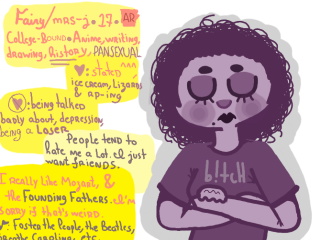 Fairy/mrs-j • 17 • AR
College-BOUND • Anime, writing,
drawing, History, PANSEXUAL
♥: STATED
ice cream, Lizards
& ap-ing
: being talked
badly about, depression,
being a Loser.
People tend to
hate me a lot. I just
want friends.
I really like Mozart, &
the Founding Fathers. I'm
sorry if that's weird.
: Foster the People, the Beatles,
etc.
b!tcH